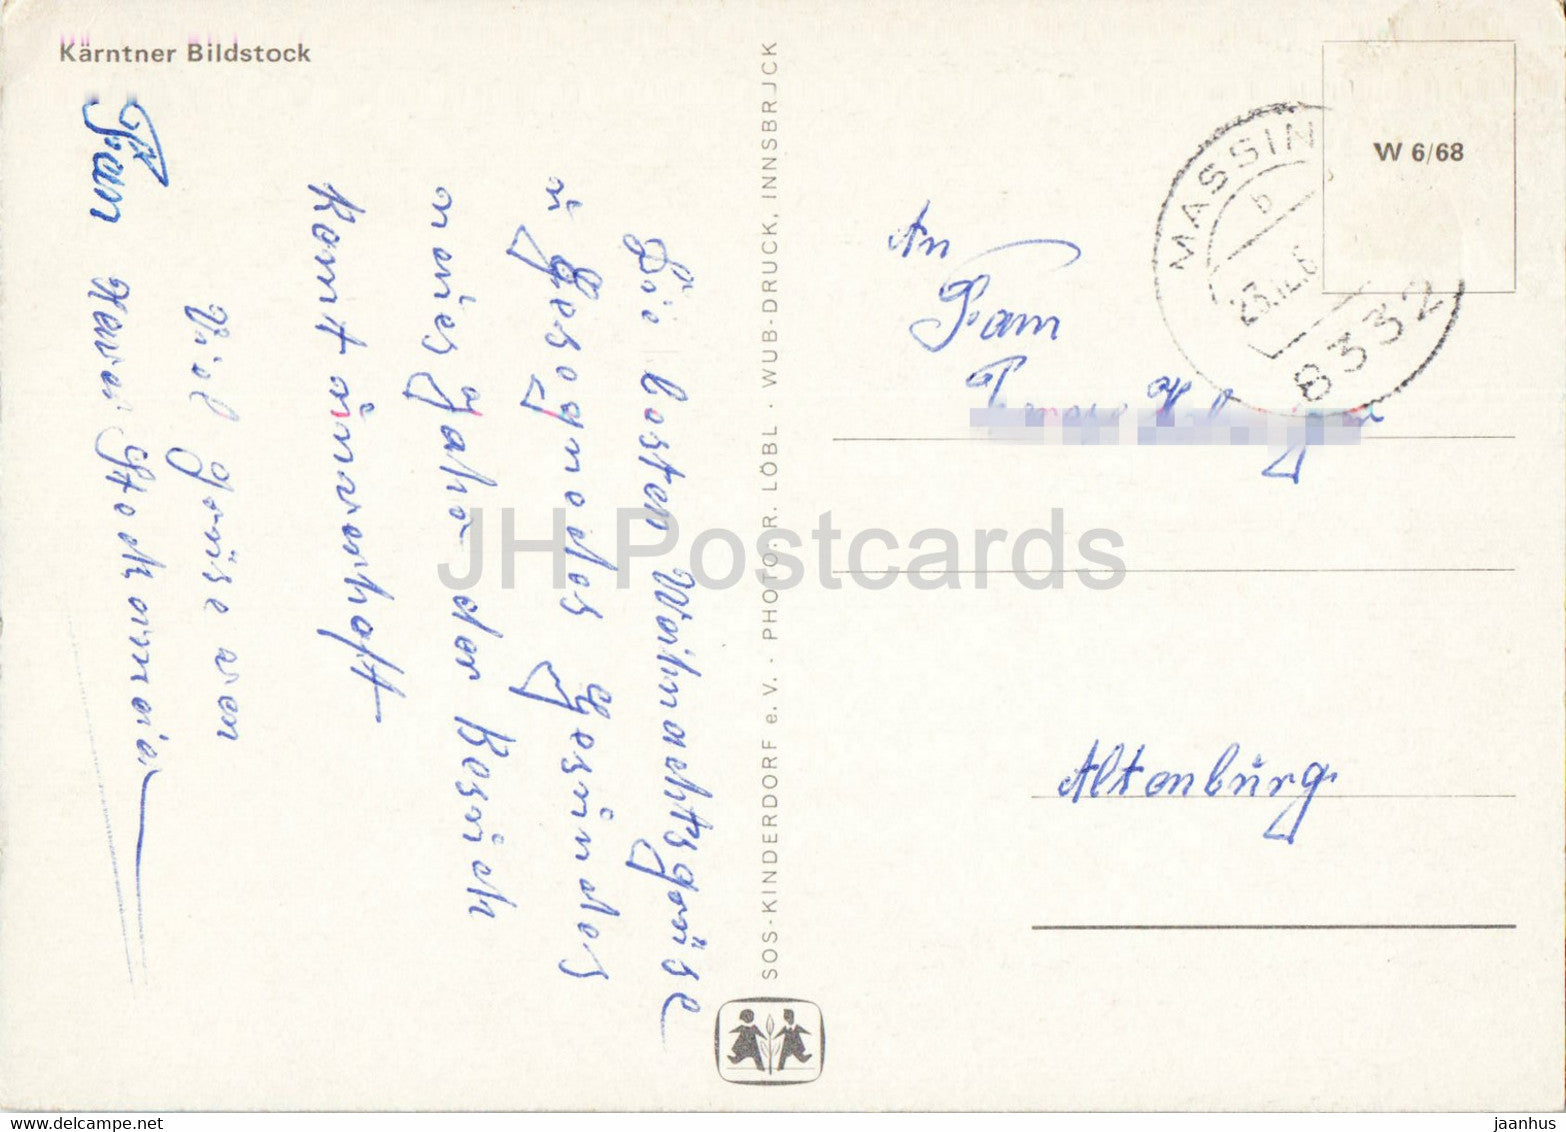 Kärntner Bildstock
Die besten Weihnachtsgrüse
ü Gesegnedes Gesundes
neues Jahr der Besuch
komt unverhoft
Viel grüse von
Fam
SOS-KINDERDORF e. V. · PHOTO: R. LÖBL · WUB-DRUCK, INNSBRUCK
W 6/68
MASSIN
b
8332
An
Fam
Altenburg
JH Postcards
www.delcampe.net
jaanhus